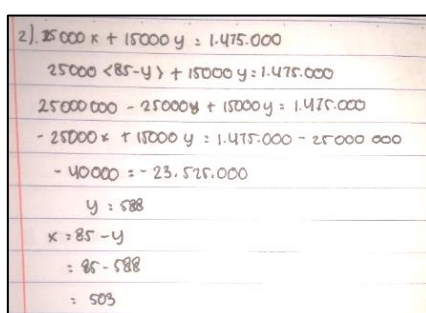 2). 25000 x + 15000 y = 1.475.000
25000 <85-y> + 15000 y = 1.475.000
25000000 - 25000y + 15000 y = 1.475.000
- 25000 x + 15000 y = 1.475.000 - 25000 000
- 40000 = - 23.525.000
y = 588
x = 85 - y
= 85 - 588
= 503